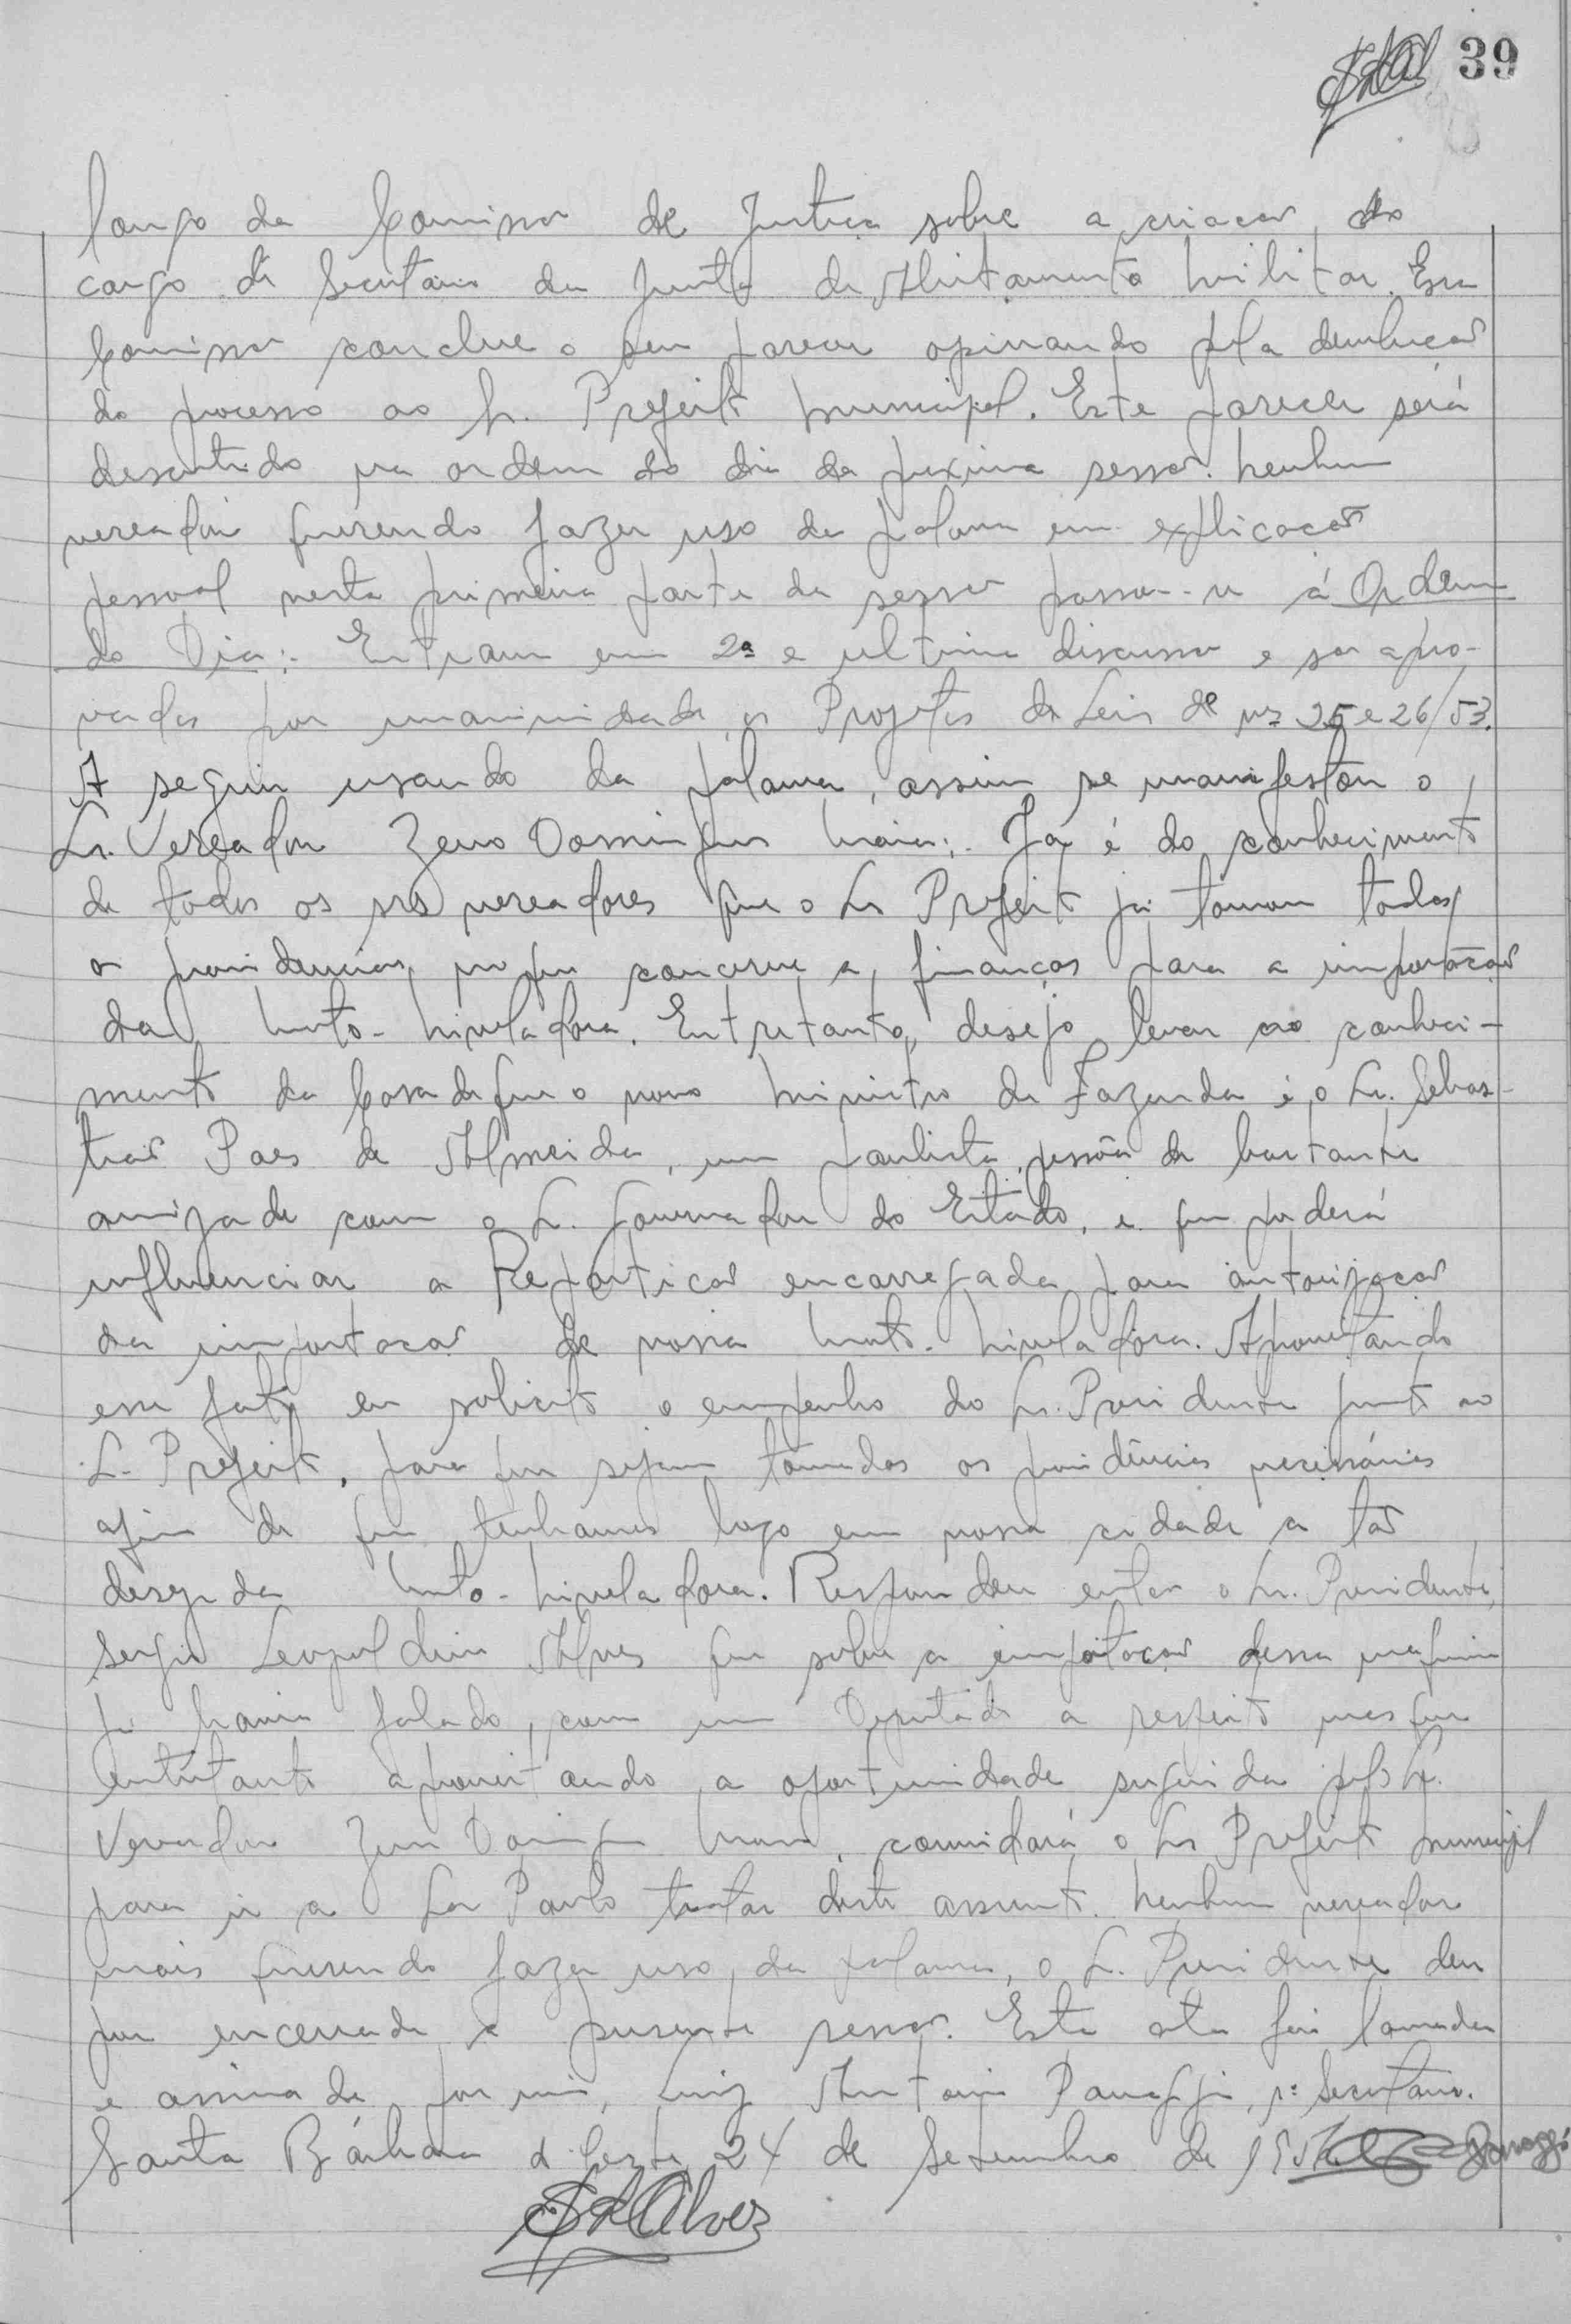 39
longo da Comissão de Justiça sobre a criação do
cargo de Secretário da Junta de Alistamento Militar. Essa
Comissão conclue o seu parecer opinando pela devolução
do processo ao Sr. Prefeito Municipal. Este parecer será
descutido na ordem do dia da proxima sessão. Nenhum
vereador querendo fazer uso da palavra em explicação
pessoal nesta primeira parte da sessão passou-se á Ordem
do Dia:- Entram em 2ª e ultima discussão e são apro-
vados por unanimidade, os Projetos de Leis de nºs 25 e 26/53.
A seguir usando da palavra, assim se manifestou o
Sr. Vereador Zeno Domingues Maia:- Já é do conhecimento
de todos os srs vereadores que o Sr Prefeito já tomou todas
as providencias, no que concerne a finanças para a importação
da Moto-Niveladora. Entretanto, desejo levar ao conheci-
mento da Casa de que o novo Ministro da Fazenda é o Sr. Sebas-
tião Paes de Almeida, um paulista, pessôa de bastante
amizade com o Sr. Governador do Estado, e que poderá
influenciar a Repartição encarregada para autorização
da importação de nossa Moto-Niveladora. Aproveitando
esse fato eu solicito o empenho do Sr. Presidente junto ao
Sr. Prefeito, para que sejam tomadas as providências necessárias
afim de que tenhamos logo em nossa cidade a tão
desejada Moto-Niveladora. Respondeu então o Sr. Presidente,
Sergio Leopoldino Alves que sobre a importação dessa maquina
já havia falado, com um Deputado a respeito mas que
entretanto aproveitando a oportunidade sugerida pelo Sr.
Vereador Zeno Domingues Maia, convidará o Sr Prefeito Municipal
para ir a São Paulo tratar deste assunto. Nenhum vereador
mais querendo fazer uso da palavra, o Sr. Presidente deu
por encerrada a presente sessão. Esta ata foi lavrada
e assinada por mim, Luiz Antonio Panaggio, 1º Secretario.
Santa Bárbara d'Oeste, 24 de Setembro de
SLAlves